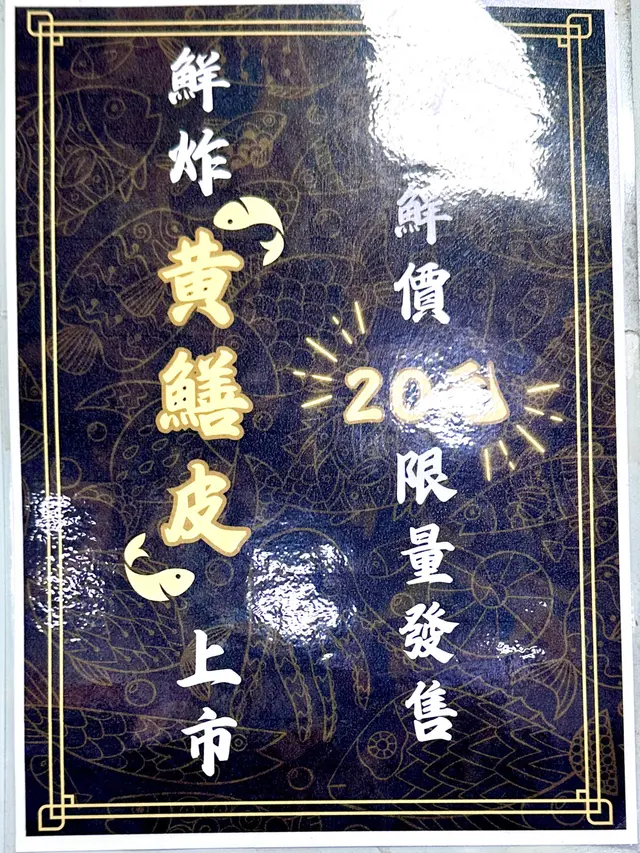 鮮炸黄鱔皮上市
鮮價20元限量發售